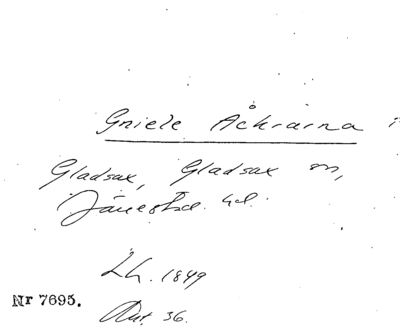 Gniele Åkrarna i
Gladsax, Gladsax sn,
Järrestad hd.
Lh. 1849
Nr 7695.
Ant. 36.